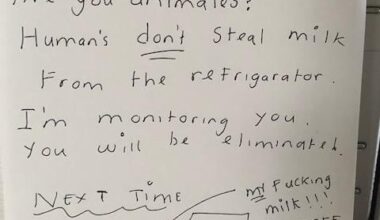 Are you animales?
Human's don't Steal milk
From the refrigarator.
I'm monitoring you.
You will be eliminated!
NEXT TIME
my Fucking
milk!!!